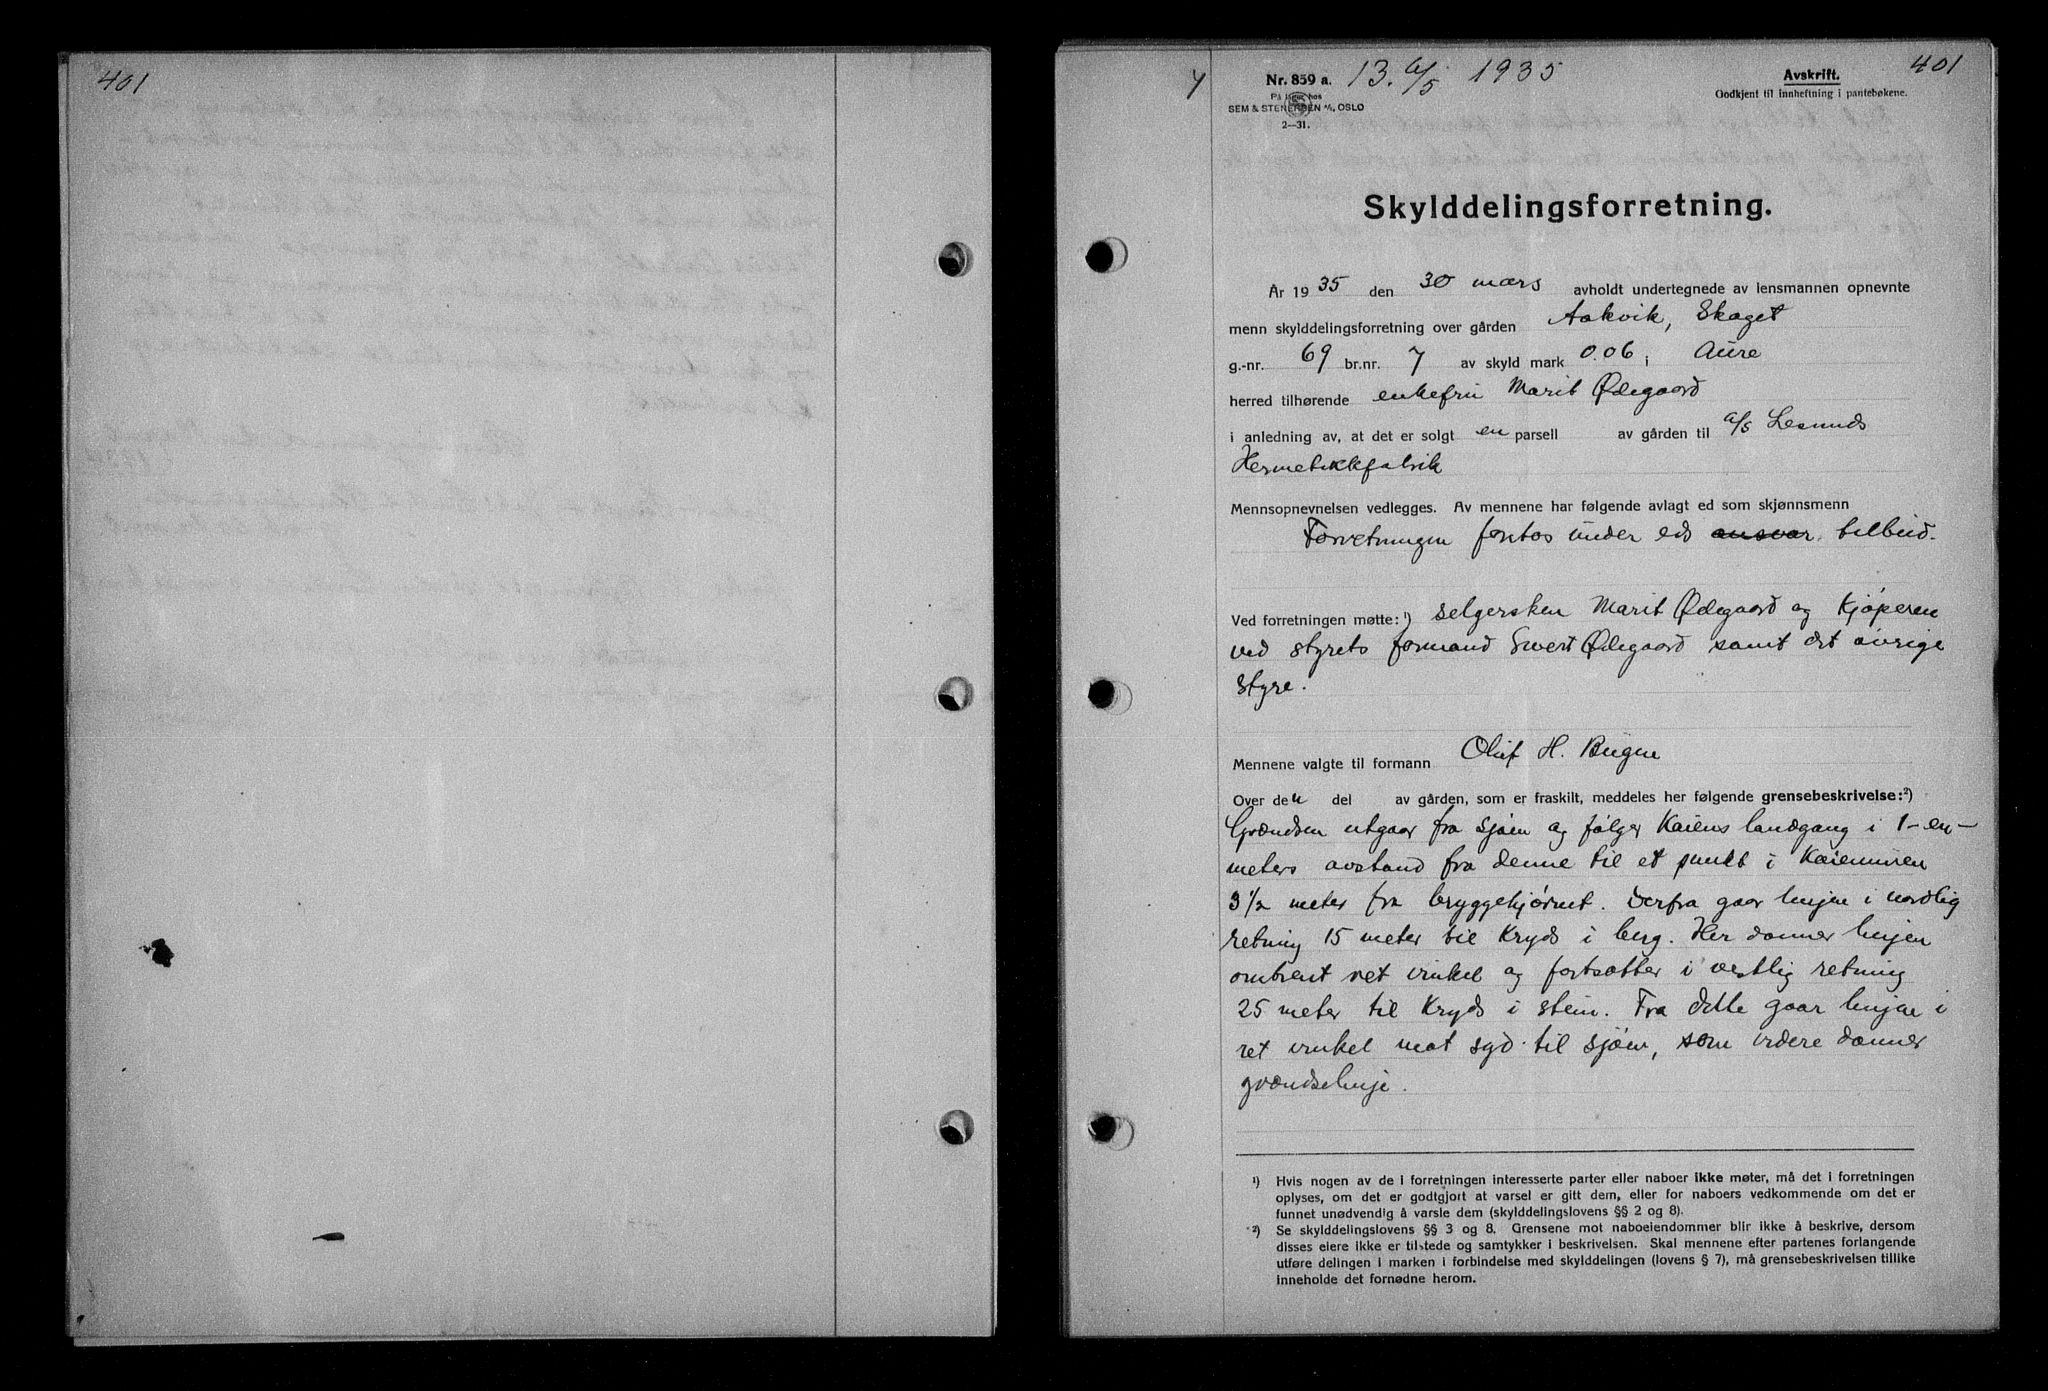 401
401
y
Nr. 859 a.
13 6/5 1935
På lager hos
SEM & STENERSEN A/S, OSLO
2—31.
Avskrift.
Godkjent til innheftning i pantebøkene.
Skylddelingsforretning.
År 1935 den 30 mars avholdt undertegnede av lensmannen opnevnte
menn skylddelingsforretning over gården Aakvik, Skaget
g.-nr. 69 br.nr. 7 av skyld mark 0.06 i Aure
herred tilhørende enkefru Marit Ødegaard
i anledning av, at det er solgt en parsell av gården til a/s Lesunds
Hermetikkfabrik
Mennsopnevnelsen vedlegges. Av mennene har følgende avlagt ed som skjønnsmenn
Forretningen foretas under eds ansvar tilbud.
Ved forretningen møtte: ¹) selgersken Marit Ødegaard og Kjøperen
ved styrets formand Sivert Ødegaard samt det øvrige
styre.
Mennene valgte til formann Oluf H. Bugne
Over den del av gården, som er fraskilt, meddeles her følgende grensebeskrivelse: ²)
Grændsen utgaar fra sjøen og følger Kaiens landgang i 1-en-
meters avstand fra denne til et punkt i Kaiemuren
3 1/2 meter fra bryggehjørnet. Derfra gaar linjen i nordlig
retning 15 meter til Kryds i berg. Her danner linjen
omtrent ret vinkel og fortsætter i vestlig retning
25 meter til Kryds i stein. Fra dette gaar linjen i
ret vinkel mot syd til sjøen, som videre danner
grændselinje.
¹) Hvis nogen av de i forretningen interesserte parter eller naboer ikke møter, må det i forretningen
oplyses, om det er godtgjort at varsel er gitt dem, eller for naboers vedkommende om det er
funnet unødvendig å varsle dem (skylddelingslovens §§ 2 og 8).
²) Se skylddelingslovens §§ 3 og 8. Grensene mot naboeiendommer blir ikke å beskrive, dersom
disses eiere ikke er tilstede og samtykker i beskrivelsen. Skal mennene efter partenes forlangende
utføre delingen i marken i forbindelse med skylddelingen (lovens § 7), må grensebeskrivelsen tillike
inneholde det fornødne herom.